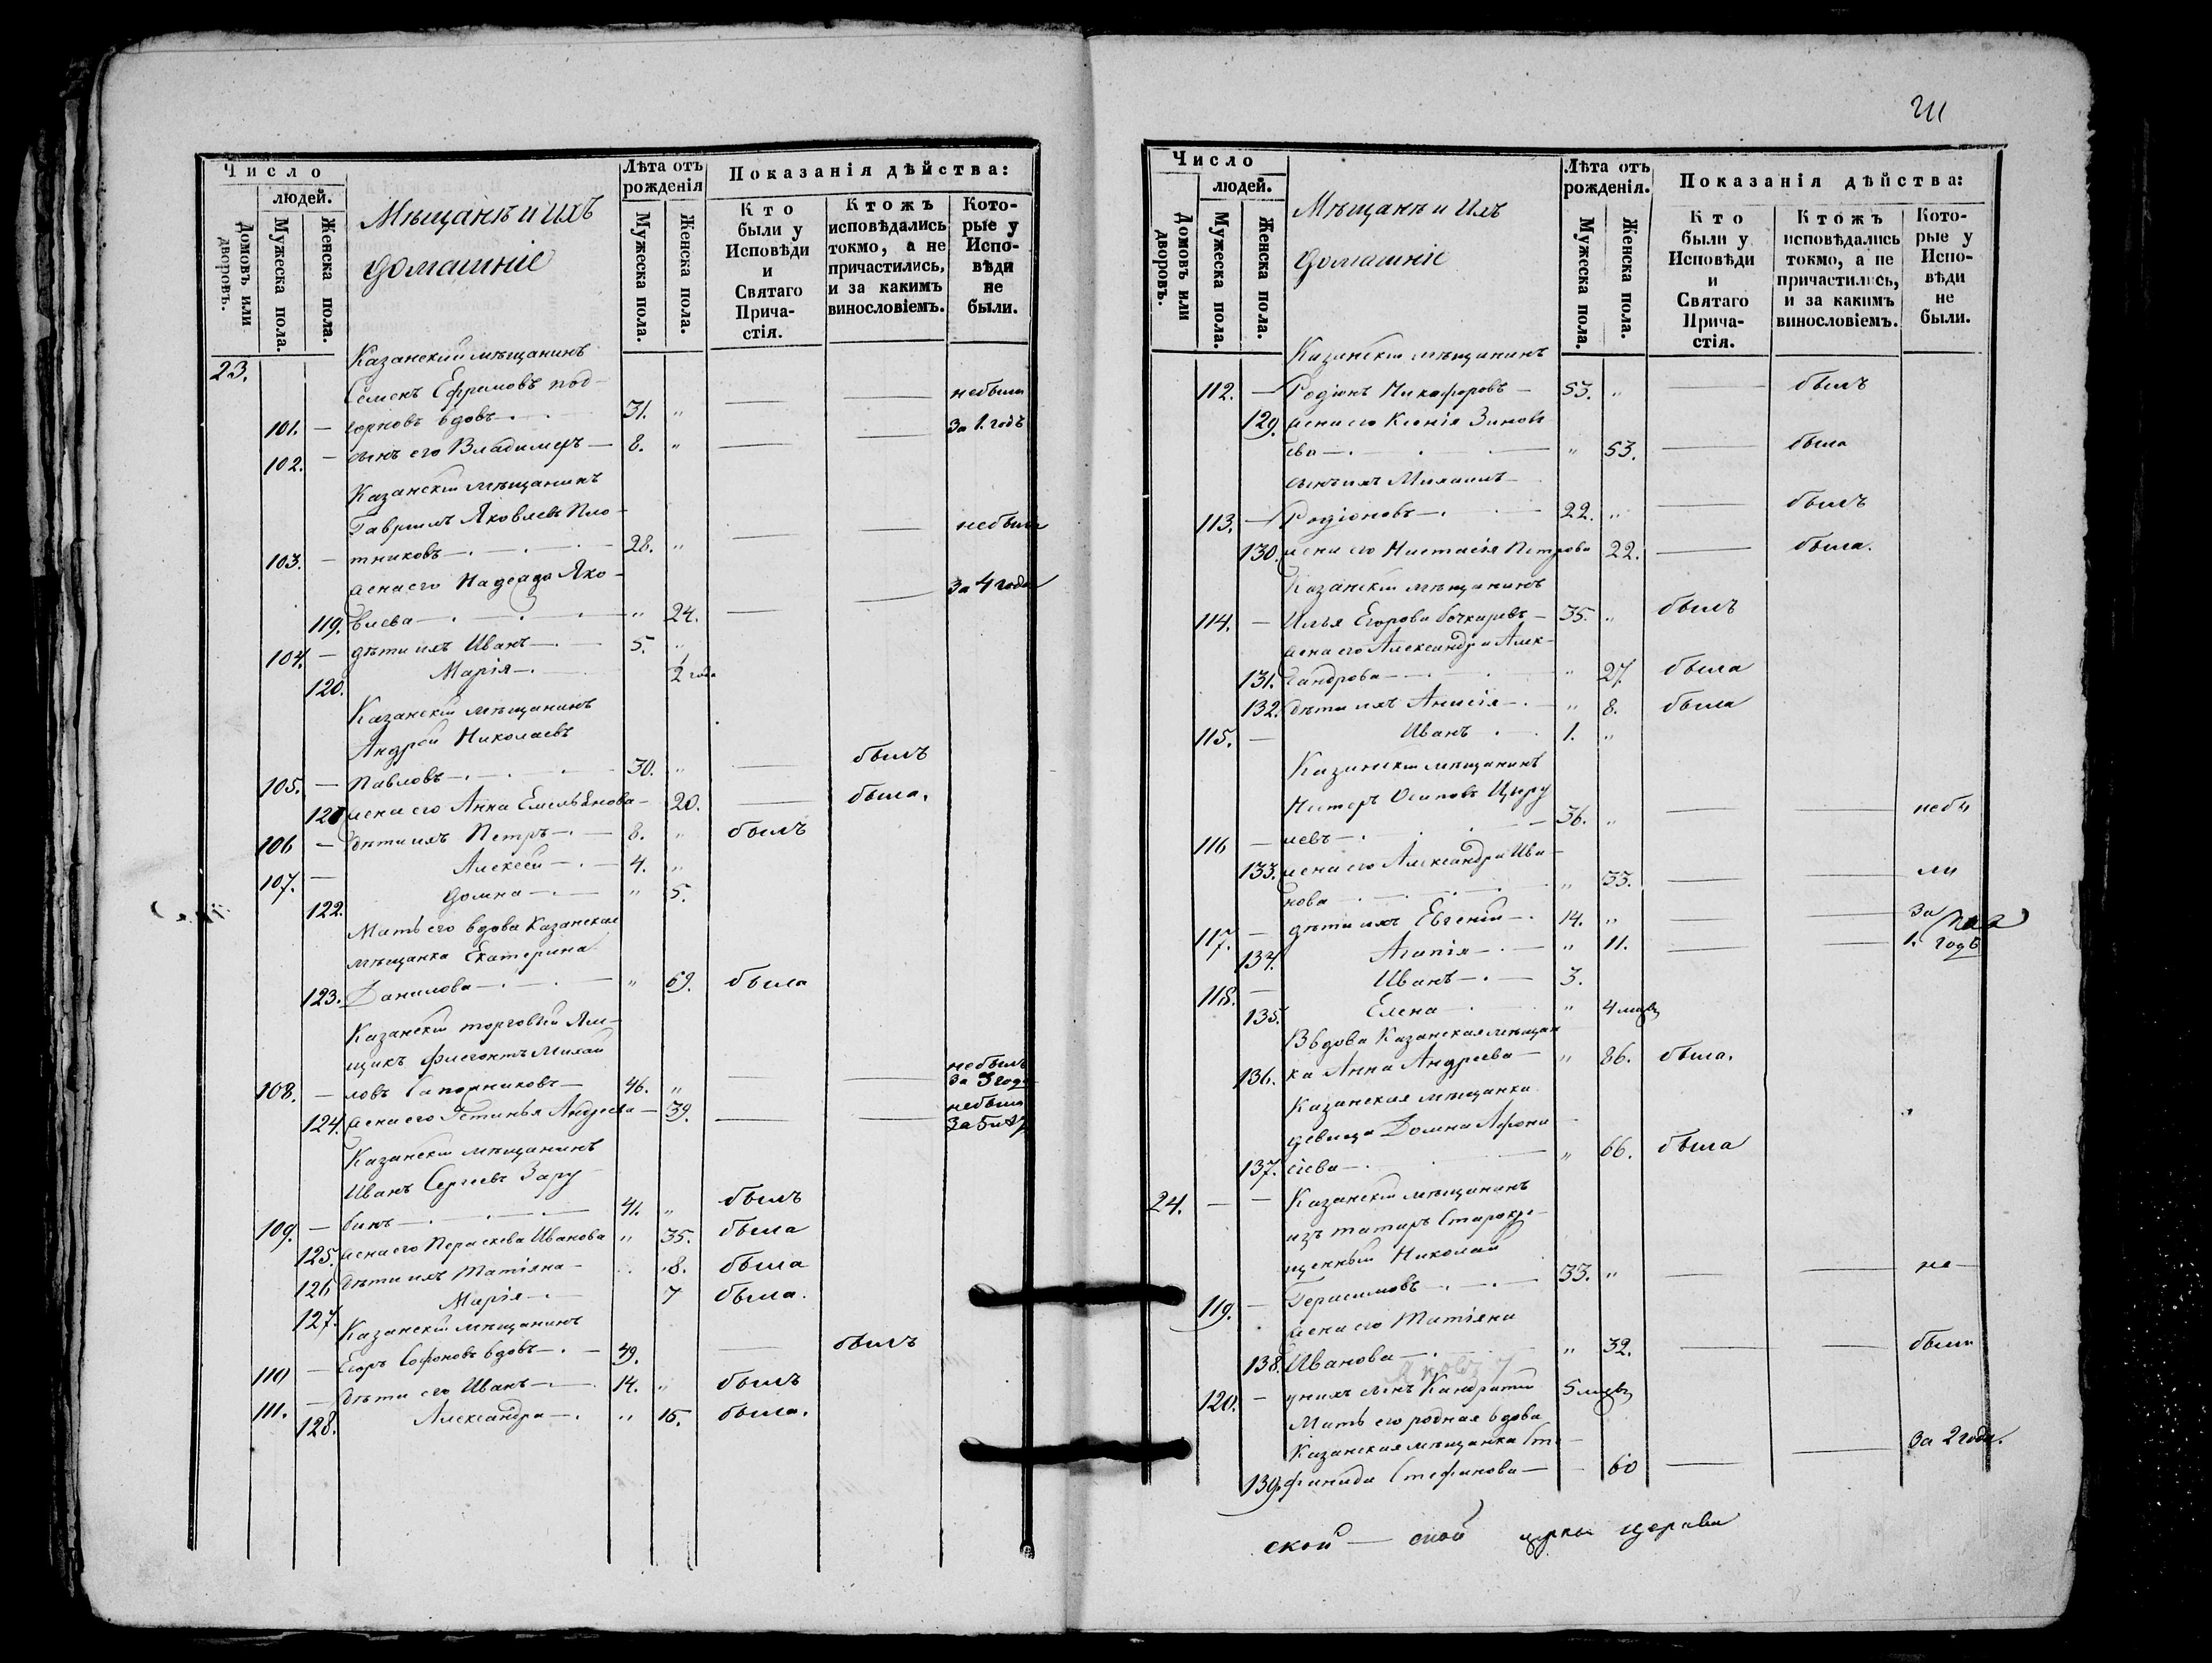 Число
людей.
Домовъ или дворовъ.
Мужеска пола.
Женска пола.
Мѣщанѣ и ихъ
домашніе
Лѣта отъ рожденія
Мужеска пола.
Женска пола.
Показанія дѣйства:
Кто были у Исповѣди и Святаго Прича-стія.
Ктожъ исповѣдались токмо, а не причастились, и за какимъ винословіемъ.
Кото-рые у Испо-вѣди не были.
23.
Казанскій мѣщанинъ
Семенъ Ефремовъ под- небыли
101. — вдовъ — 31. „ — — За 1. годъ
102. — сынъ его Владимеръ — 8. „ —
Казанскій мѣщанинъ
Гавріилъ Яковлевъ Пло-
103. — тниковъ — 28. „ — — небыли
жена его Надежда Яко-
119. влева — „ 24. — — За 4 года
104. — дѣти ихъ Иванъ — 5. „
120. Марія — ½ года
Казанскій мѣщанинъ
Андрей Николаевъ
105. — Павловъ — 30. „ — былъ
121 жена его Анна Емельянова — 20. — была.
106 — дѣти ихъ Петръ — 8. „ былъ
107. — Алексѣй — 4. „
122. Домна — „ 5.
Мать его вдова Казанская
мѣщанка Екатерина
123. Данилова — „ 69. была
Казанскій торговый Ям-
щикъ Флегонтъ Михай
108. — ловъ Сапожниковъ — 46. „ — — небылъ За 3 года
124. жена его Устинья Андреева — 39. — — небыла За 5 лѣт
Казанскій мѣщанинъ
Иванъ Сергѣевъ Зару
109. — бинъ — 41. „ былъ
125. жена его Параскева Иванова „ 35. была
126 дѣти ихъ Татіяна — 8. была
127. Марія — 7 была.
Казанскій мѣщанинъ
110 — Егоръ Софоновъ вдовъ — 49. — былъ
111. — дѣти его Иванъ — 14. „ былъ
128. Александра — „ 15. была.
211
Число
людей.
Домовъ или дворовъ.
Мужеска пола.
Женска пола.
Мѣщанѣ и Ихъ
домашніе
Лѣта отъ рожденія.
Мужеска пола.
Женска пола.
Показанія дѣйства:
Кто были у Исповѣди и Святаго Прича-стія.
Ктожъ исповѣдались токмо, а не причастились, и за какимъ винословіемъ.
Кото-рые у Испо-вѣди не были.
Казанскій мѣщанинъ
112. — Родіонъ Никифоровъ — 53. „ — былъ
129. жена его Ксенія Зиновь
ева — „ 53. — была
сынъ ихъ Михаилъ —
113. — Родіоновъ — 22. „ — былъ
130. жена его Настасія Петрова 22. — была.
Казанскій мѣщанинъ
114. — Илья Егоровъ Бочкаревъ — 35. „ былъ
жена его Александра Алек-
131. сандрова — „ 27. была
132. дѣти ихъ Анисія — „ 8. была
115. — Иванъ 1. „
Казанскій мѣщанинъ
Нестеръ Осиповъ Цыру
116 — левъ — 36. „ — — небы
133. жена его Александра Ива-
нова — „ 33. — — ли
117. — дѣти ихъ Евгеній — 14. „ — — За
134. Агапія — „ 11. — — 1. годъ
118. — Иванъ — 3.
135. Елена — „ 4 мѣсц
Вдова Казанская мѣщан
136. ка Анна Андреева — „ 86. была.
Казанская мѣщанка
девица Домна Афона
137. сіева — „ 66. была
24. — — Казанскій мѣщанинъ
изъ татаръ Старокре-
щенный Николай
119. — Герасимовъ — 33. „ — — не —
жена его Татіяна
138. Иванова — „ 32. — — были
Яковъ 7
120. — у нихъ сынъ Кандратій 5 мѣсц
Мать его родная вдова
Казанская мѣщанка Сте-
139. фанида Стефанова — 60 — — За 2 года.
ской — ской церкви